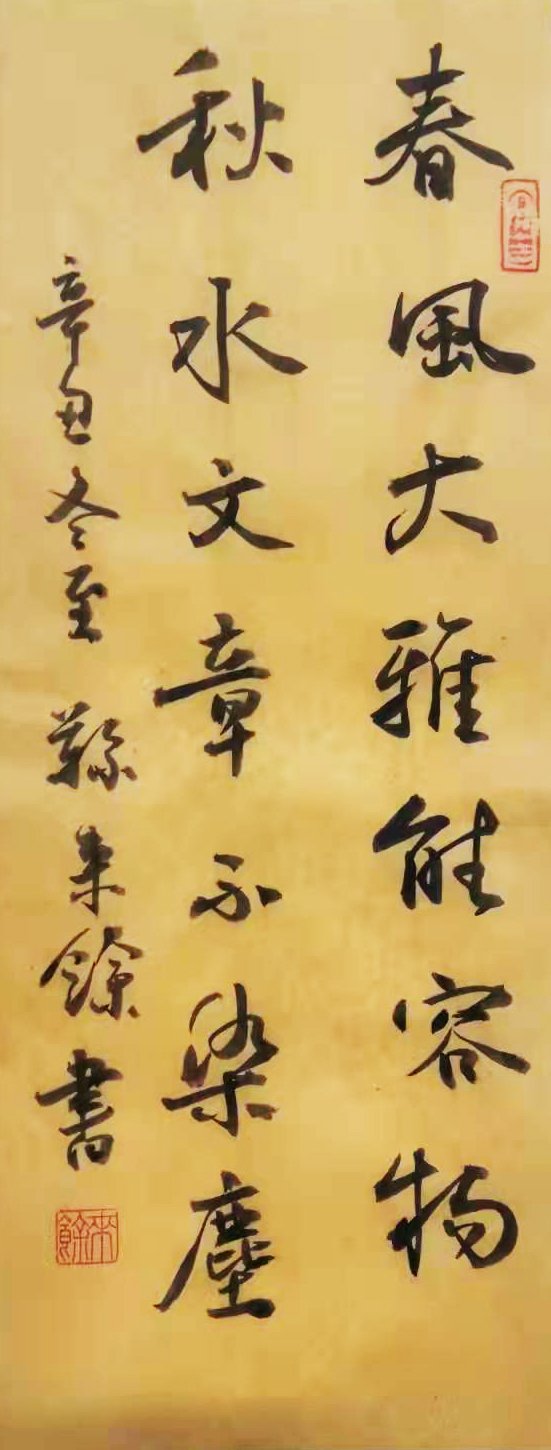 春風大雅能容物
秋水文章不染塵
辛丑冬至 孫來餘書
來餘